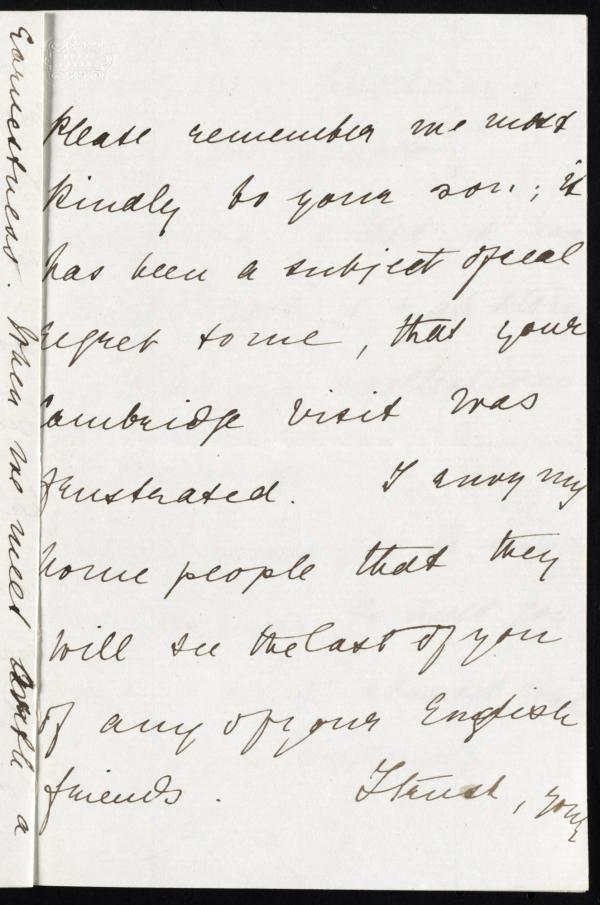 Please remember me most
kindly to your son; it
has been a subject of real
regret to me, that your
Cambridge visit was
frustrated. I envy my
home people that they
will see the last of you
of any of your English
friends. I trust, your
earnestness. When we meet a